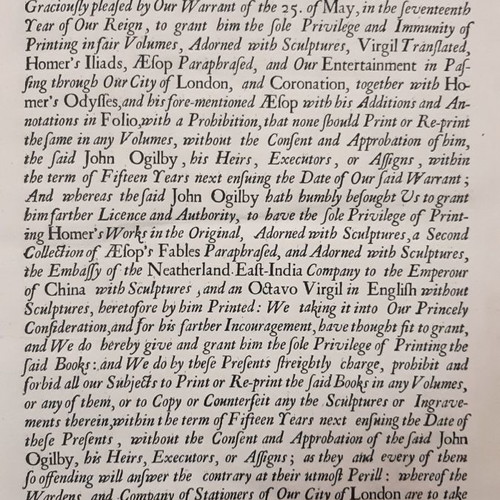 Graciously pleased by Our Warrant of the 25. of May, in the seventeenth
Year of Our Reign, to grant him the sole Privilege and Immunity of
Printing in fair Volumes, Adorned with Sculptures, Virgil Translated,
Homer's Iliads, Æsop Paraphrased, and Our Entertainment in Paſ-
ſing through Our City of London, and Coronation, together with Ho-
mer's Odyſſes, and his fore-mentioned Æſop with his Additions and An-
notations in Folio, with a Prohibition, that none ſhould Print or Re-print
the ſame in any Volumes, without the Conſent and Approbation of him,
the ſaid John Ogilby, his Heirs, Executors, or Aſſigns, within
the term of Fifteen Years next enſuing the Date of Our ſaid Warrant;
And whereas the ſaid John Ogilby hath humbly beſought Us to grant
him farther Licence and Authority, to have the ſole Privilege of Print-
ing Homer's Works in the Original, Adorned with Sculptures, a Second
Collection of Æſop's Fables Paraphraſed, and Adorned with Sculptures,
the Embaſſy of the Neatherland-Eaſt-India Company to the Emperour
of China with Sculptures, and an Octavo Virgil in Engliſh without
Sculptures, heretofore by him Printed: We taking it into Our Princely
Conſideration, and for his farther Incouragement, have thought fit to grant,
and We do hereby give and grant him the ſole Privilege of Printing the
ſaid Books: and We do by theſe Preſents ſtreightly charge, prohibit and
forbid all our Subjects to Print or Re-print the ſaid Books in any Volumes,
or any of them, or to Copy or Counterfeit any the Sculptures or Ingrave-
ments therein, within the term of Fifteen Years next enſuing the Date of
theſe Preſents, without the Conſent and Approbation of the ſaid John
Ogilby, his Heirs, Executors, or Aſſigns; as they and every of them
ſo offending will anſwer the contrary at their utmoſt Perill: whereof the
Wardens and Company of Stationers of Our City of London are to take